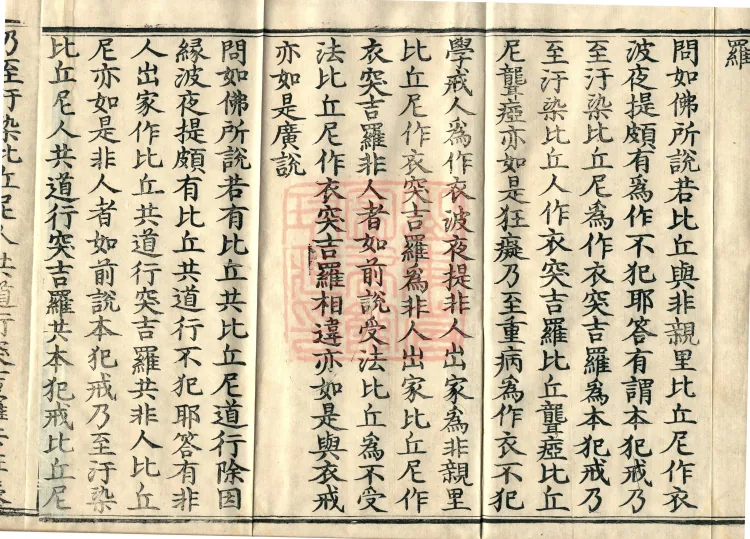 羅
問如佛所說若比丘與非親里比丘尼作衣
波夜提頗有爲作不犯耶答有謂本犯戒乃
至汙染比丘尼爲作衣突吉羅爲本犯戒乃
至汙染比丘人作衣突吉羅比丘聾瘂比丘
尼聾瘂亦如是狂癡乃至重病爲作衣不犯
學戒人爲作衣波夜提非人出家爲非親里
比丘尼作衣突吉羅爲非人出家比丘尼作
衣突吉羅非人者如前說受法比丘爲不受
法比丘尼作衣突吉羅相違亦如是與衣戒
亦如是廣說
問如佛所說若有比丘共比丘尼道行除因
緣波夜提頗有比丘共道行不犯耶答有非
人出家作比丘共道行突吉羅共非人比丘
尼亦如是非人者如前說本犯戒乃至汙染
比丘尼人共道行突吉羅共本犯戒比丘尼
乃至汙染比丘尼人共道行突吉羅